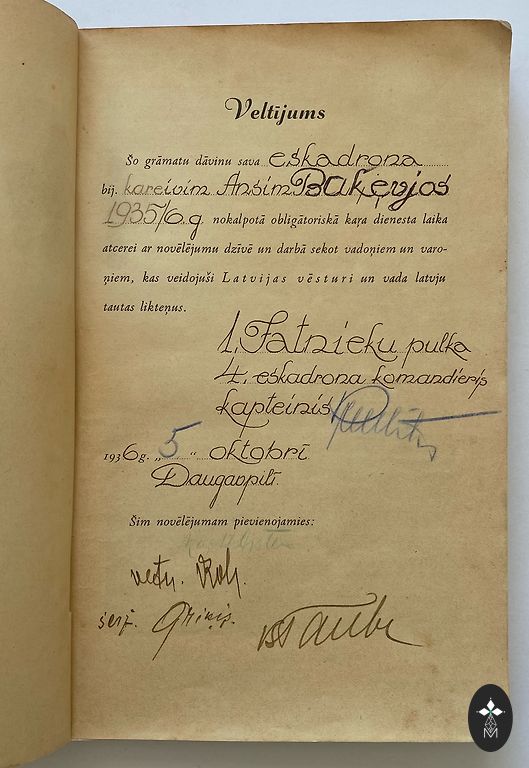 Veltījums
Šo grāmatu dāvinu sava eskadrona
bij. kareivim Ansim
1935/6.g nokalpotā obligātoriskā kaŗa dienesta laika
atcerei ar novēlējumu dzīvē un darbā sekot vadoņiem un varo-
ņiem, kas veidojuši Latvijas vēsturi un vada latvju
tautas likteņus.
1. Jātnieku pulka
4. eskadrona komandieris
kapteinis
1936 g. „ 5 “ oktobrī
Daugavpilī.
Šim novēlējumam pievienojamies:
serž.